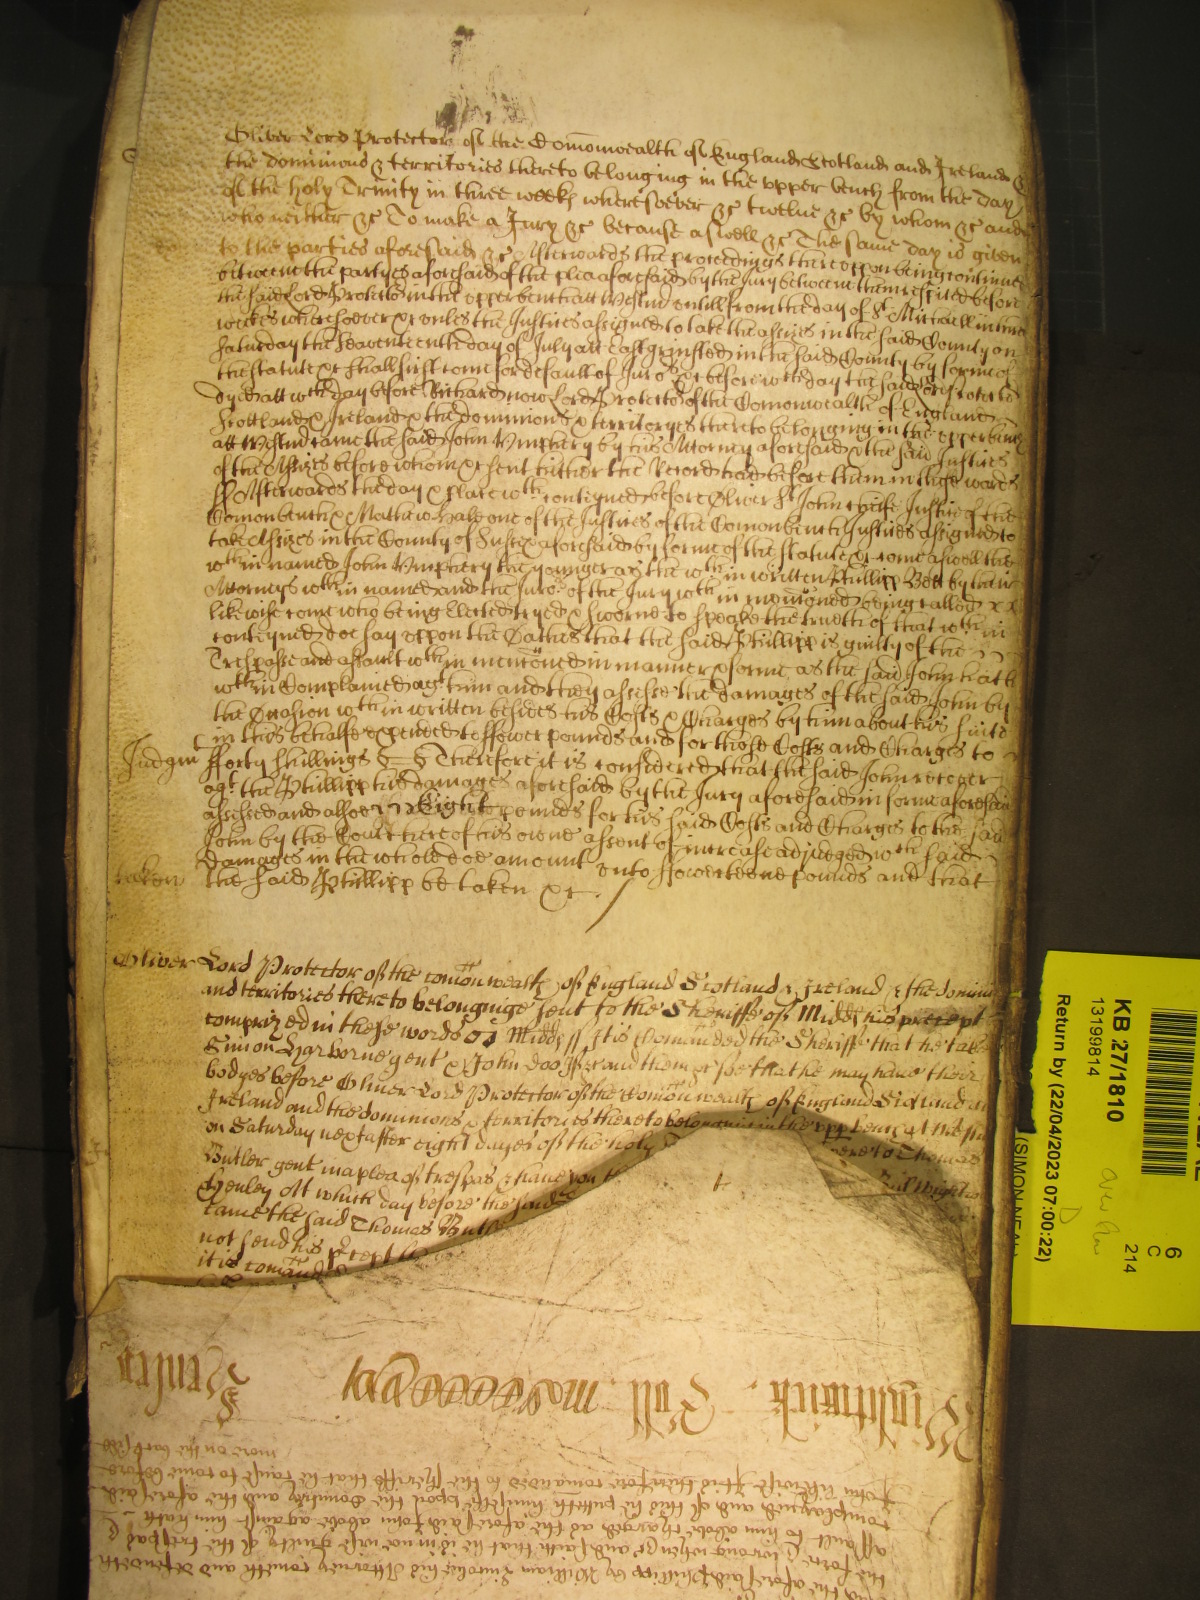 Oliver Lord Protector of the Comonwealth of England Scotland and Ireland &
the dominions & territories thereto belonging in the upper bench from the Day
of the Holy Trinity in three weeks wheresoever &c twelve &c by whom &c and
who neither &c To make a Jury &c because aswell &c The same day is given
to the parties aforesaid &c Afterwards the proceedings thereuppon being continued
betweene the partyes aforesaid of the plea aforesaid by the Jury betweene them respited before
the said Lord Protector in the upper bench att Westmr untill from the day of St Michaell in three
weekes wheresoever &c unles the Justices assigned to take the assizes in the said County on
Saturday the seaventeenth day of July att Eastgrinsted in the said County by forme of
the statute &c shall first come for default of Juro &c before wch day the said Lord Protector
dyed att wch day before Richard now Lord Protector of the Comonwealth of England
Scotland & Ireland & the dominions & territoryes thereto belonging in the upper bench
att Westmr came the said John Umphery by his Attorney aforesaid & the said Justices
of the Assizes before whom &c sent hither the Record had before them in these words
ss Afterwards the day & place wthin conteyned before Oliver St John cheife Justice of the
Comon bench & Mathew Hale one of the Justices of the Comon bench Justices assigned to
take Assizes in the County of Sussex aforesaid by forme of the statute &c come aswell the
wthin named John Umphery the younger as the wthin written Phillipp Bett by their
Attorneys wthin named and the Juro of the Jury wthin menconed being called &c
likewise come who being elected tryed & sworne to speake the trueth of that wthin
conteyned doe say uppon the Oathes that the said Phillipp is guilty of the
Trespasse and assault wthin menconed in manner & forme as the said John hath
wthin Complained agt him and they assesse the damages of the said John by
the Occasion wthin written besides his Costs & Charges by him about his suite
in this behalfe expended to ffower pounds and for those Costs and Charges to
Judgmt fforty shillings Therefore it is considered that the said John recover
agt the Phillipp his damages aforesaid by the Jury aforesaid in forme aforesaid
assessed and alsoe Eight pounds for his said Costs and Charges to the said
John by the Court here of his owne assent of increase adjudged wch said
damages in the whole doe amount unto ffowerteene pounds and that
taken the said Phillipp be taken &c
Oliver Lord Protector of the comonwealth of England Scotland & Ireland & the dominions
and territories thereto belonginge sent to the Sheriffe of Midd his precept
comprized in these words ss Midd ss It is Comanded the Sheriffe that he take
Simon Harborne gent & John Doo If and them safe that he may have their
bodyes before Oliver Lord Protector of the Comonwealth of England Scotland &
Ireland and the dominions & territories thereto belonginge in the upp bench at Westmr
on Saturday next after eight dayes of the holy
Butler gent in a plea of trespas & have you th
Henley Att which day before the said
came the said Thomas Butl
not send his precept
it is comanded
Wightwick. Roll.
more on the back side
John likewise It is therefore comanded to the sheriffe that he cause to come before
complayned and of this he putteth himselfe upon the Country and the aforesaid
assault to him above charged as the aforesaid John above against him hath
force & wrong when &c and saith that he is in no wise guilty of the trespas
And the aforesaid Phillipp by William his Attorney cometh and defendeth
KB 27/1810
13199814
Return by (22/04/2023 07:00:22)
(SIMON NEAL)
6
C
214